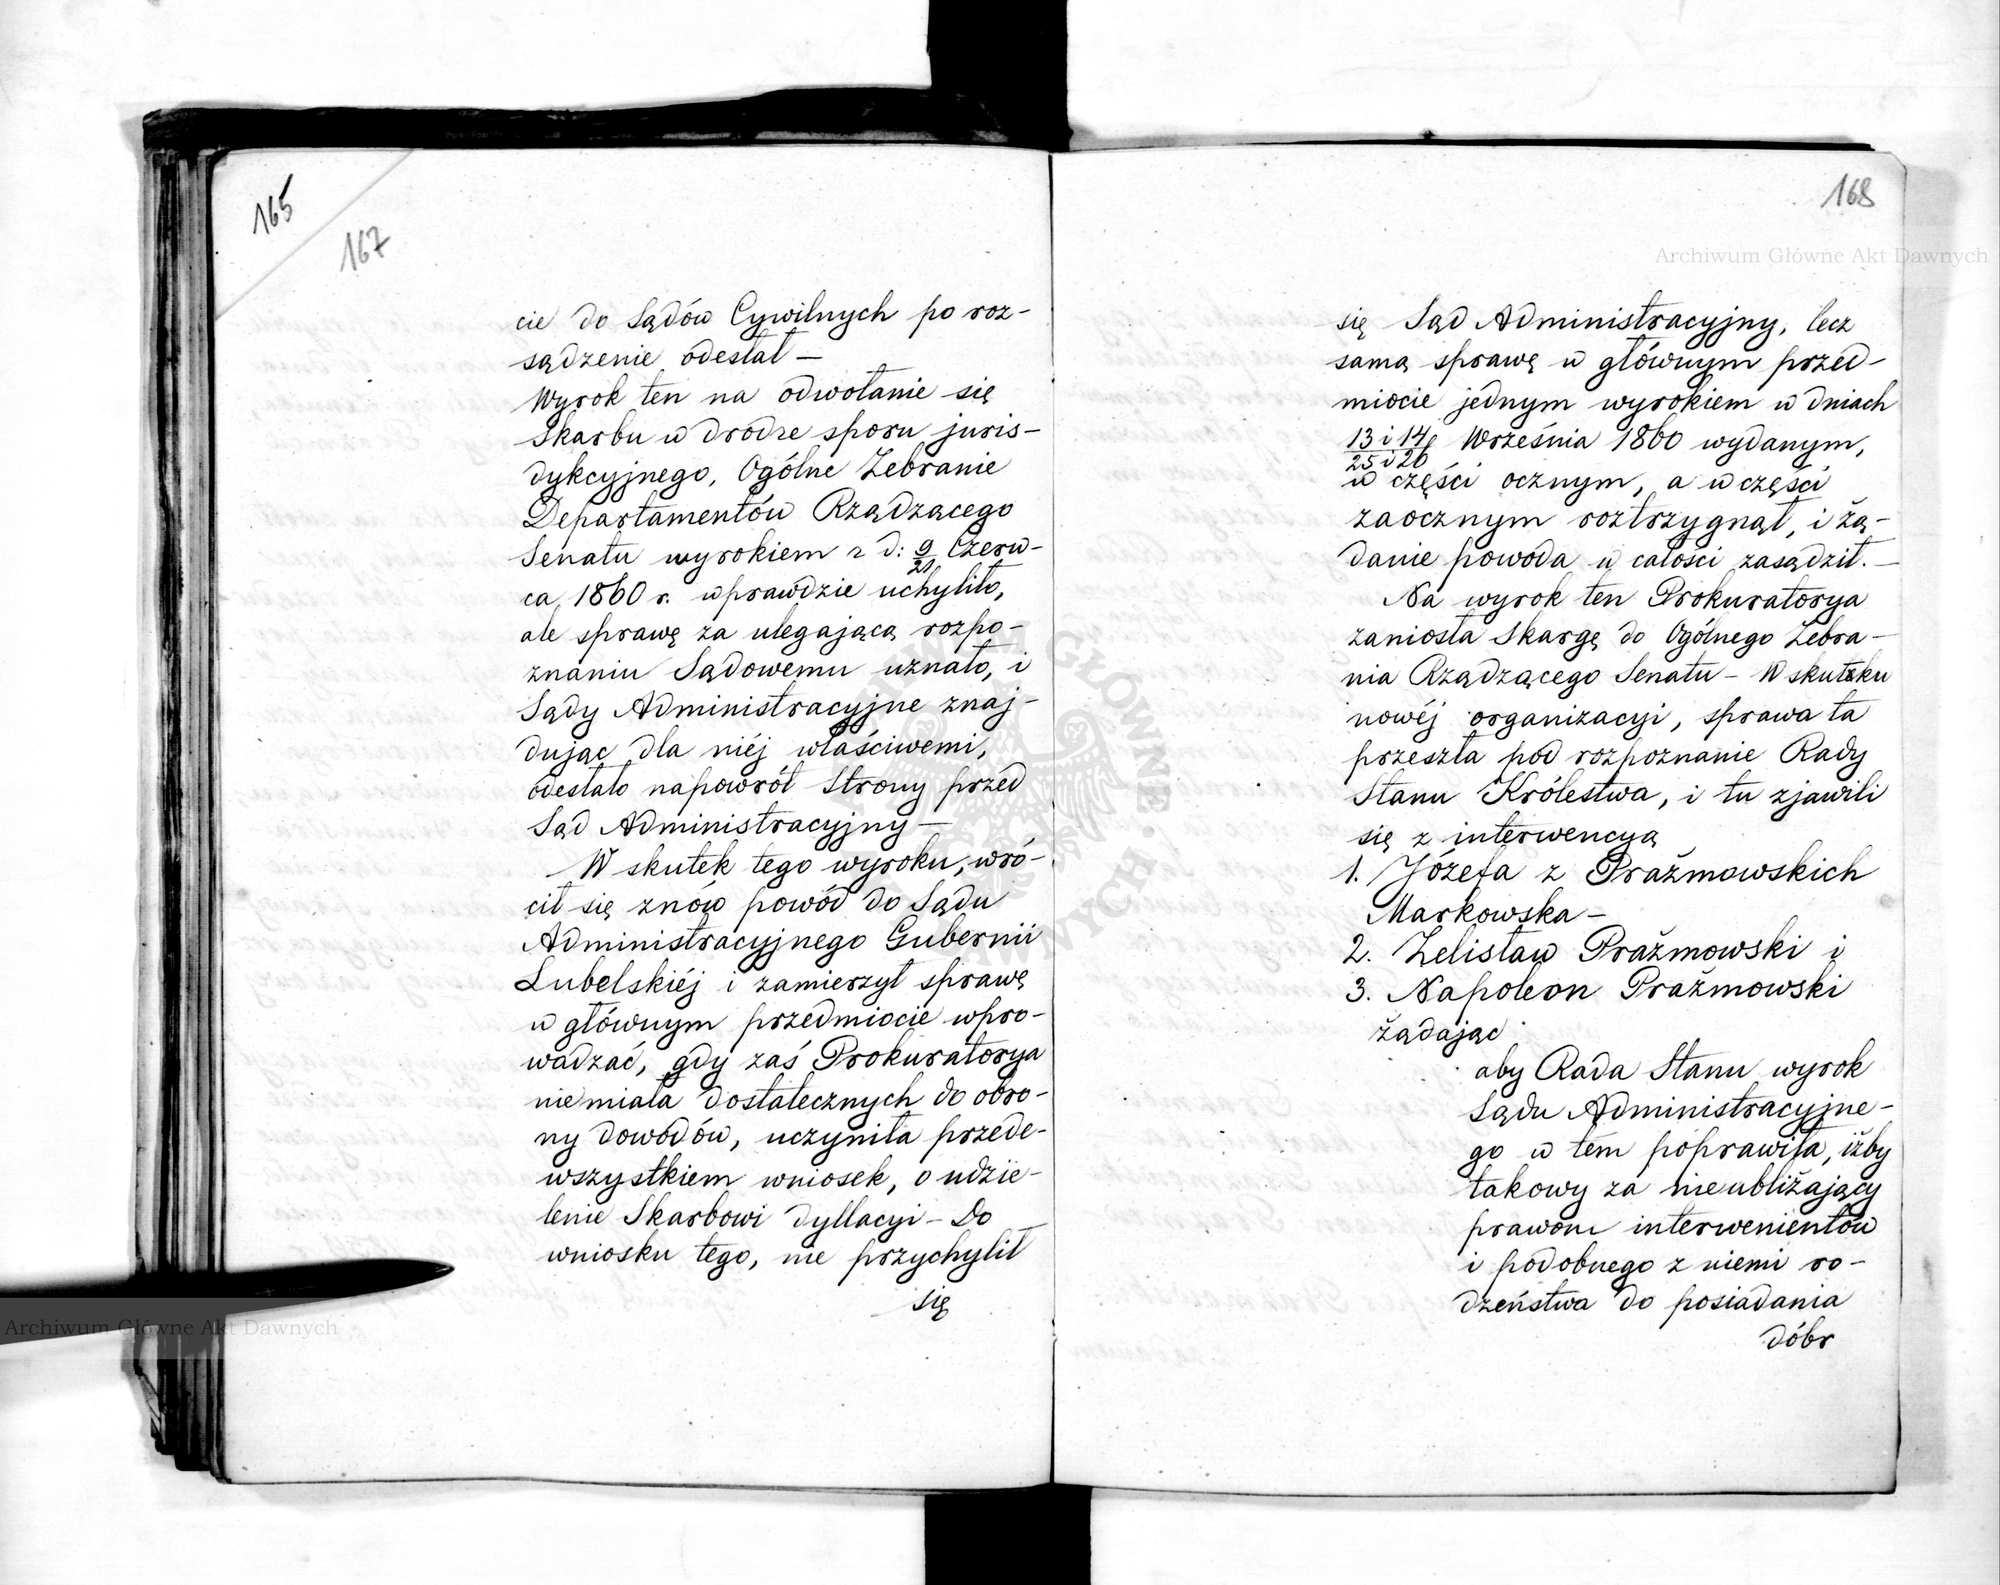 165
167
cie do Sądów Cywilnych po roz-
sądzenie odesłał —
Wyrok ten na odwołanie się
Skarbu w drodze sporu juris-
dykcyjnego, Ogólne Zebranie
Departamentów Rządzącego
Senatu wyrokiem z d: 9/21 Czerw-
ca 1860 r. wprawdzie uchyliło,
ale sprawę za ulegającą rozpo-
znaniu Sądowemu uznało, i
Sądy Administracyjne znaj-
dując dla niéj właściwemi,
odesłało napowrót Strony przed
Sąd Administracyjny —
W skutek tego wyroku, wró-
cił się znów powód do Sądu
Administracyjnego Gubernii
Lubelskiéj i zamierzył sprawę
w głównym przedmiocie wpro-
wadzać, gdy zaś Prokuratorya
niemiała dostatecznych do obro-
ny dowodów, uczyniła przede-
wszystkiem wniosek, o udzie-
lenie Skarbowi dyllacyi — Do
wniosku tego, nie przychylił
się
168
Archiwum Główne Akt Dawnych
się Sąd Administracyjny, lecz
samą sprawę w głównym przed-
miocie jednym wyrokiem w dniach
13 i 14/25 i 26 Września 1860 wydanym,
w części ocznym, a w części
zaocznym roztrzygnął, i żą-
danie powoda w całości zasądził. —
Na wyrok ten Prokuratorya
zaniosła Skargę do Ogólnego Zebra-
nia Rządzącego Senatu — W skutku
nowéj organizacyi, sprawa ta
przeszła pod rozpoznanie Rady
Stanu Królestwa, i tu zjawili
się z interwencyą
1. Józefa z Prażmowskich
Markowska —
2. Zelisław Prażmowski i
3. Napoleon Prażmowski
żądając
aby Rada Stanu wyrok
Sądu Administracyjne-
go w tem poprawiła, iżby
takowy za nieubliżający
prawom interwenientów
i podobnego z niemi ro-
dzeństwa do posiadania
dóbr
Archiwum Główne Akt Dawnych